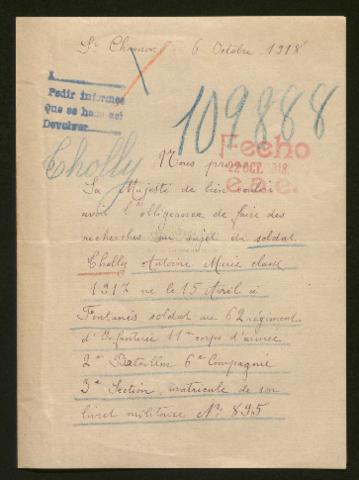 St Chamond 6 Octobre 1918
Pedir informes
que se haga así
Devolver
109888
Fecho
22 OCT. 1918
Cholly
Nous prions
Sa Majesté de bien vouloir
avoir l'obligeance de faire des
recherches au sujet du soldat
Cholly Antoine Marie classe
1917 né le 15 Avril à
Fontanès soldat au 62 régiment
d'Infanterie 11me corps d'armée
2me Bataillon 6e Compagnie
3e Section, matricule de son
livret militaire No 895